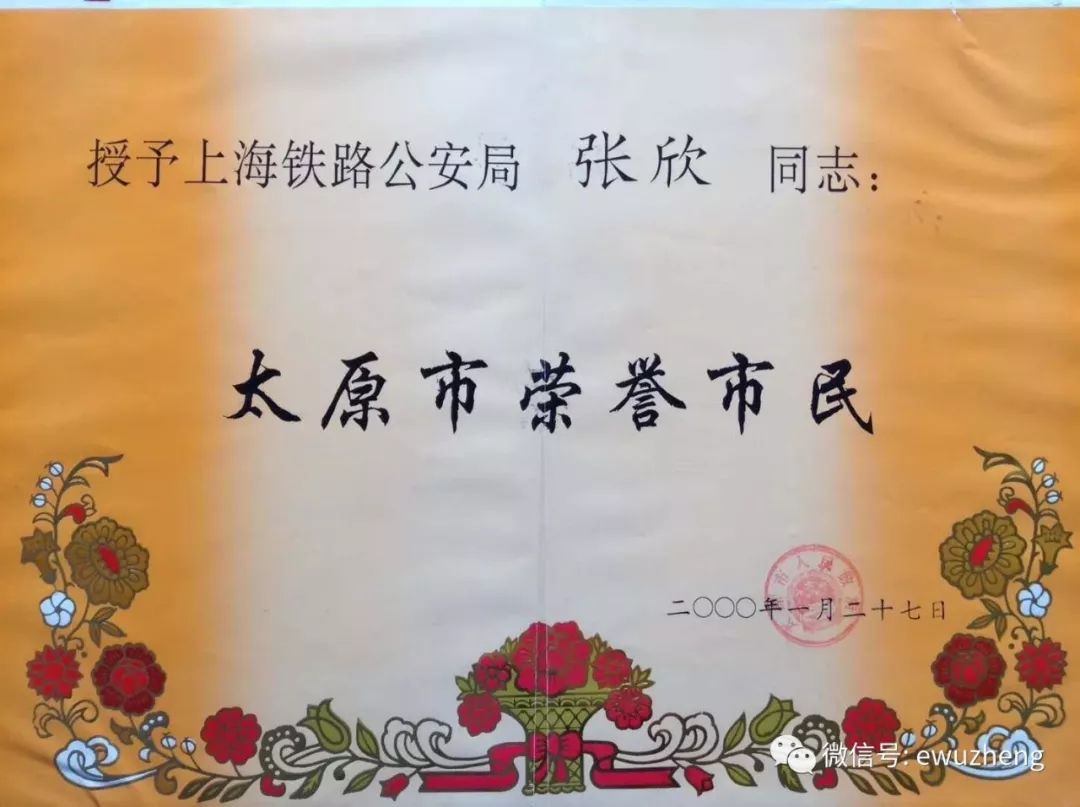 授予上海铁路公安局 张欣 同志：
太原市荣誉市民
二〇〇〇年一月二十七日
微信号: ewuzheng